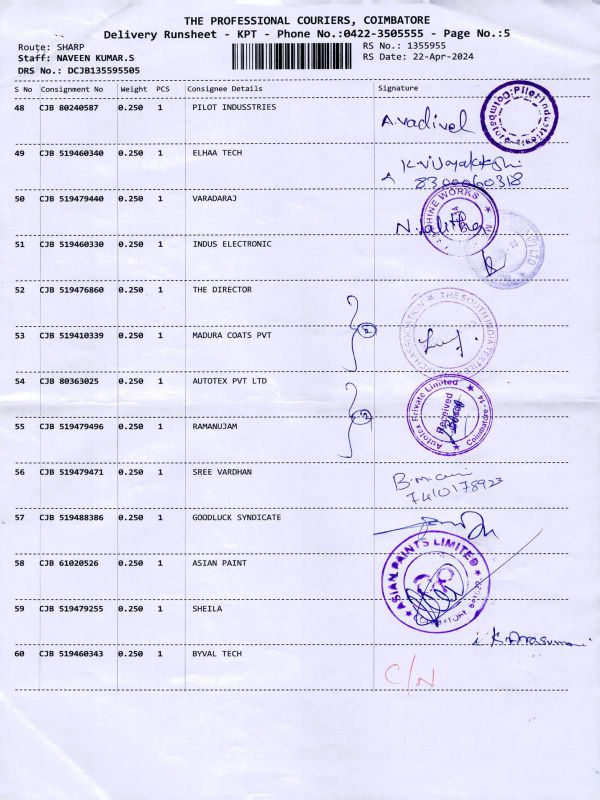 THE PROFESSIONAL COURIERS, COIMBATORE
Delivery Runsheet - KPT - Phone No.:0422-3505555 - Page No.:5
Route: SHARP
RS No.: 1355955
Staff: NAVEEN KUMAR.S
RS Date: 22-Apr-2024
DRS No.: DCJB135595505
S No Consignment No Weight PCS Consignee Details Signature
48 CJB 80240587 0.250 1 PILOT INDUSSTRIES
A.vadivel
49 CJB 519460340 0.250 1 ELHAA TECH
8300060318
50 CJB 519479440 0.250 1 VARADARAJ
51 CJB 519460330 0.250 1 INDUS ELECTRONIC
52 CJB 519476860 0.250 1 THE DIRECTOR
THE SOUTH INDIA
53 CJB 519410339 0.250 1 MADURA COATS PVT
54 CJB 80363025 0.250 1 AUTOTEX PVT LTD
Autotex Private Limited
Received
Coimbatore - 14
55 CJB 519479496 0.250 1 RAMANUJAM
56 CJB 519479471 0.250 1 SREE VARDHAN
B.mani
7410178923
57 CJB 519488386 0.250 1 GOODLUCK SYNDICATE
58 CJB 61020526 0.250 1 ASIAN PAINT
ASIAN PAINTS LIMITED
59 CJB 519479255 0.250 1 SHEILA
60 CJB 519460343 0.250 1 BYVAL TECH
C/N